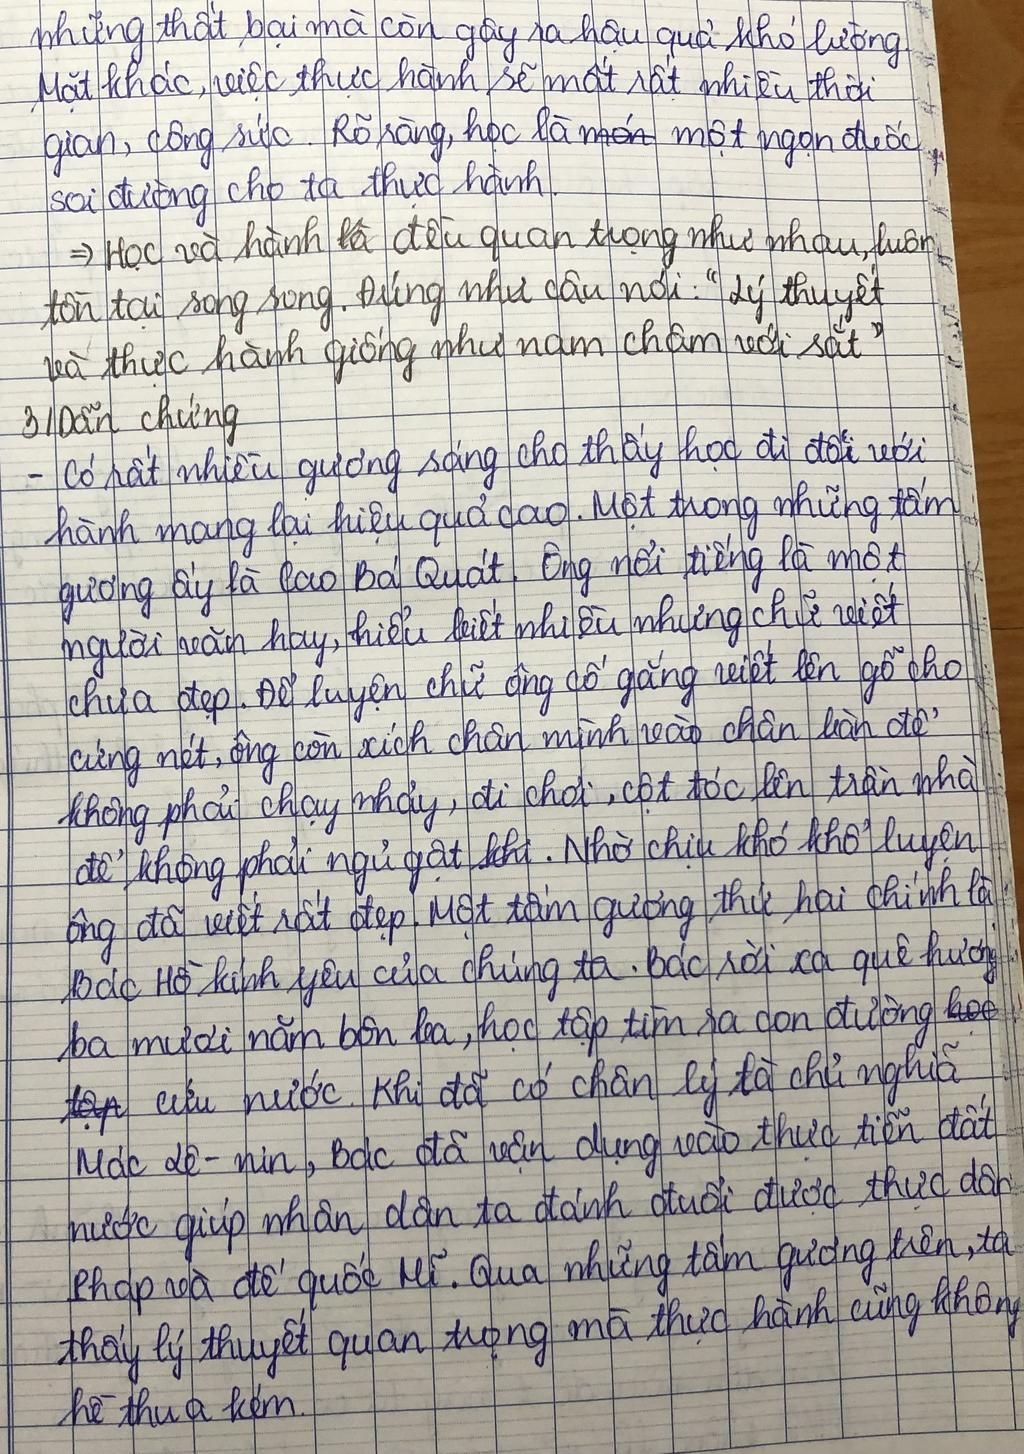 những thất bại mà còn gây ra hậu quả khó lường.
Mặt khác, việc thực hành sẽ mất rất nhiều thời
gian, công sức. Rõ ràng, học là món một ngọn đuốc
soi đường cho ta thực hành.
⇒ Học và hành là đều quan trọng như nhau, luôn
tồn tại song song. Đúng như câu nói: "Lý thuyết
và thực hành giống như nam châm với sắt"
3/ Dẫn chứng
- Có rất nhiều gương sáng cho thấy học đi đôi với
hành mang lại hiệu quả cao. Một trong những tấm
gương ấy là Cao Bá Quát. Ông nổi tiếng là một
người văn hay, hiểu biết nhiều nhưng chữ viết
chưa đẹp. Để luyện chữ ông cố gắng viết lên gỗ cho
cứng nét, ông còn xích chân mình vào chân bàn để
không phải chạy nhảy, đi chơi, cột tóc lên trần nhà
để không phải ngủ gật khi. Nhờ chịu khó khổ luyện
ông đã viết rất đẹp. Một tấm gương thứ hai chính là
Bác Hồ kính yêu của chúng ta. Bác rời xa quê hương
ba mươi năm bôn ba, học tập tìm ra con đường học
tập cứu nước. Khi đã có chân lý là chủ nghĩa
Mác Lê-nin, Bác đã vận dụng vào thực tiễn đất
nước giúp nhân dân ta đánh đuổi được thực dân
Pháp và đế quốc Mĩ. Qua những tấm gương trên, ta
thấy lý thuyết quan trọng mà thực hành cũng không
hề thua kém.